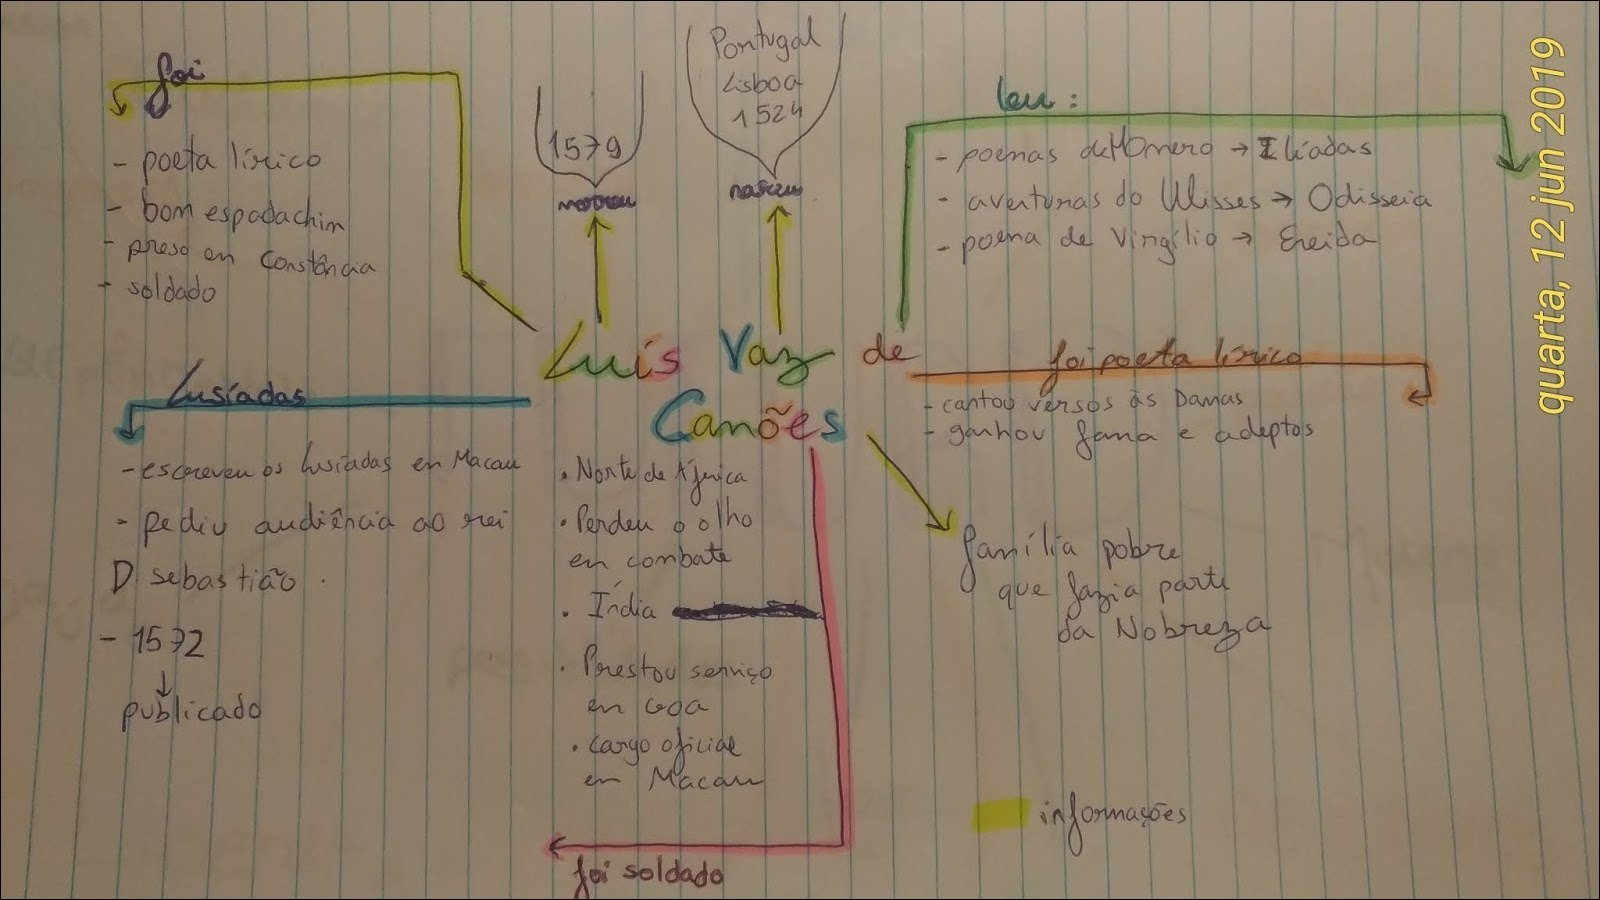 foi
- poeta lírico
- bom espadachim
- preso em Constância
- soldado
1579
morreu
Portugal
Lisboa
1524
nasceu
leu :
- poemas de Homero → Ilíadas
- aventuras do Ulisses → Odisseia
- poema de Virgílio → Eneida
Luís Vaz de
Camões
foi poeta lírico
- cantou versos às Damas
- ganhou fama e adeptos
Lusíadas
- escreveu os Lusíadas em Macau
- pediu audiência ao rei
D sebastião.
- 1572
↓
publicado
• Norte de África
• Perdeu o olho
em combate
• Índia
• Prestou serviço
em Goa
• Cargo oficial
em Macau
foi soldado
família pobre
que fazia parte
da Nobreza
informações
quarta, 12 jun 2019